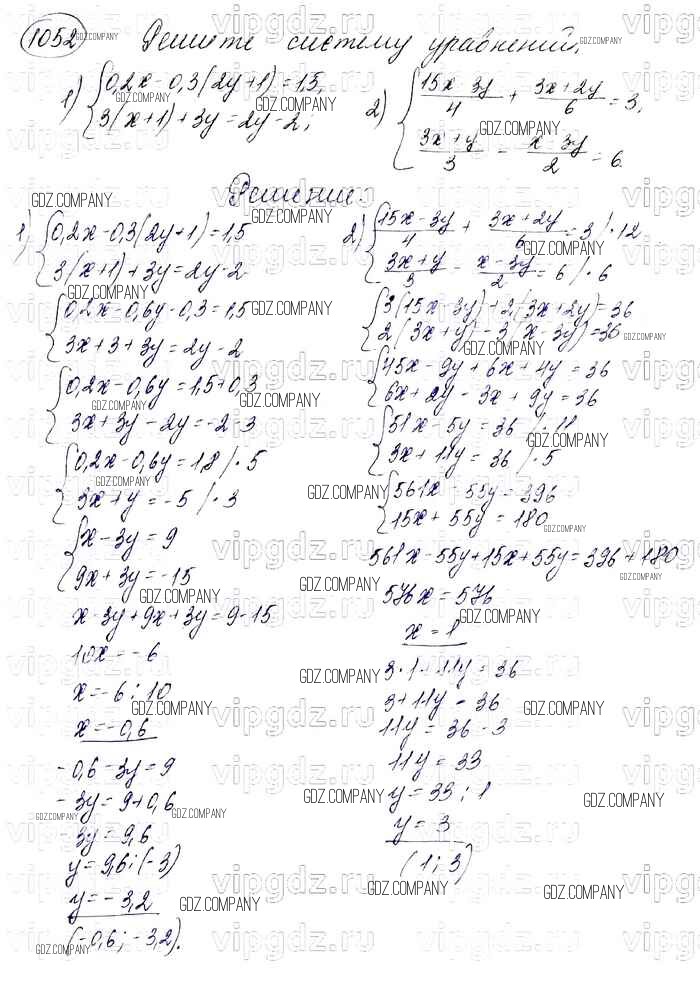 1052 Решите систему уравнений.
1) {0,2x - 0,3(2y+1) = 1,5,
3(x+1) + 3y = 2y - 2;
2) {15x 3y/4 + 3x+2y/6 = 3,
3x+y/3 - x 3y/2 = 6.
Решение:
1) {0,2x - 0,3(2y+1) = 1,5
3(x+1) + 3y = 2y - 2
{0,2x - 0,6y - 0,3 = 1,5
3x + 3 + 3y = 2y - 2
{0,2x - 0,6y = 1,5 + 0,3
3x + 3y - 2y = -2 - 3
{0,2x - 0,6y = 1,8 /·5
3x + y = -5 /·3
{x - 3y = 9
9x + 3y = -15
x - 3y + 9x + 3y = 9 - 15
10x = -6
x = -6 : 10
x = -0,6
-0,6 - 3y = 9
-3y = 9 + 0,6
-3y = 9,6
y = 9,6 : (-3)
y = -3,2
(-0,6; -3,2).
2) {15x - 3y/4 + 3x+2y/6 = 3 /·12
3x+y/3 - x-3y/2 = 6 /·6
{3(15x - 3y) + 2(3x + 2y) = 36
2(3x + y) - 3(x - 3y) = 36
{45x - 9y + 6x + 4y = 36
6x + 2y - 3x + 9y = 36
{51x - 5y = 36 /·11
3x + 11y = 36 /·5
{561x - 55y = 396
15x + 55y = 180
561x - 55y + 15x + 55y = 396 + 180
576x = 576
x = 1
3·1 + 11y = 36
3 + 11y = 36
11y = 36 - 3
11y = 33
y = 33 : 1
y = 3
(1; 3)
GDZ.COMPANY
vipgdz.ru